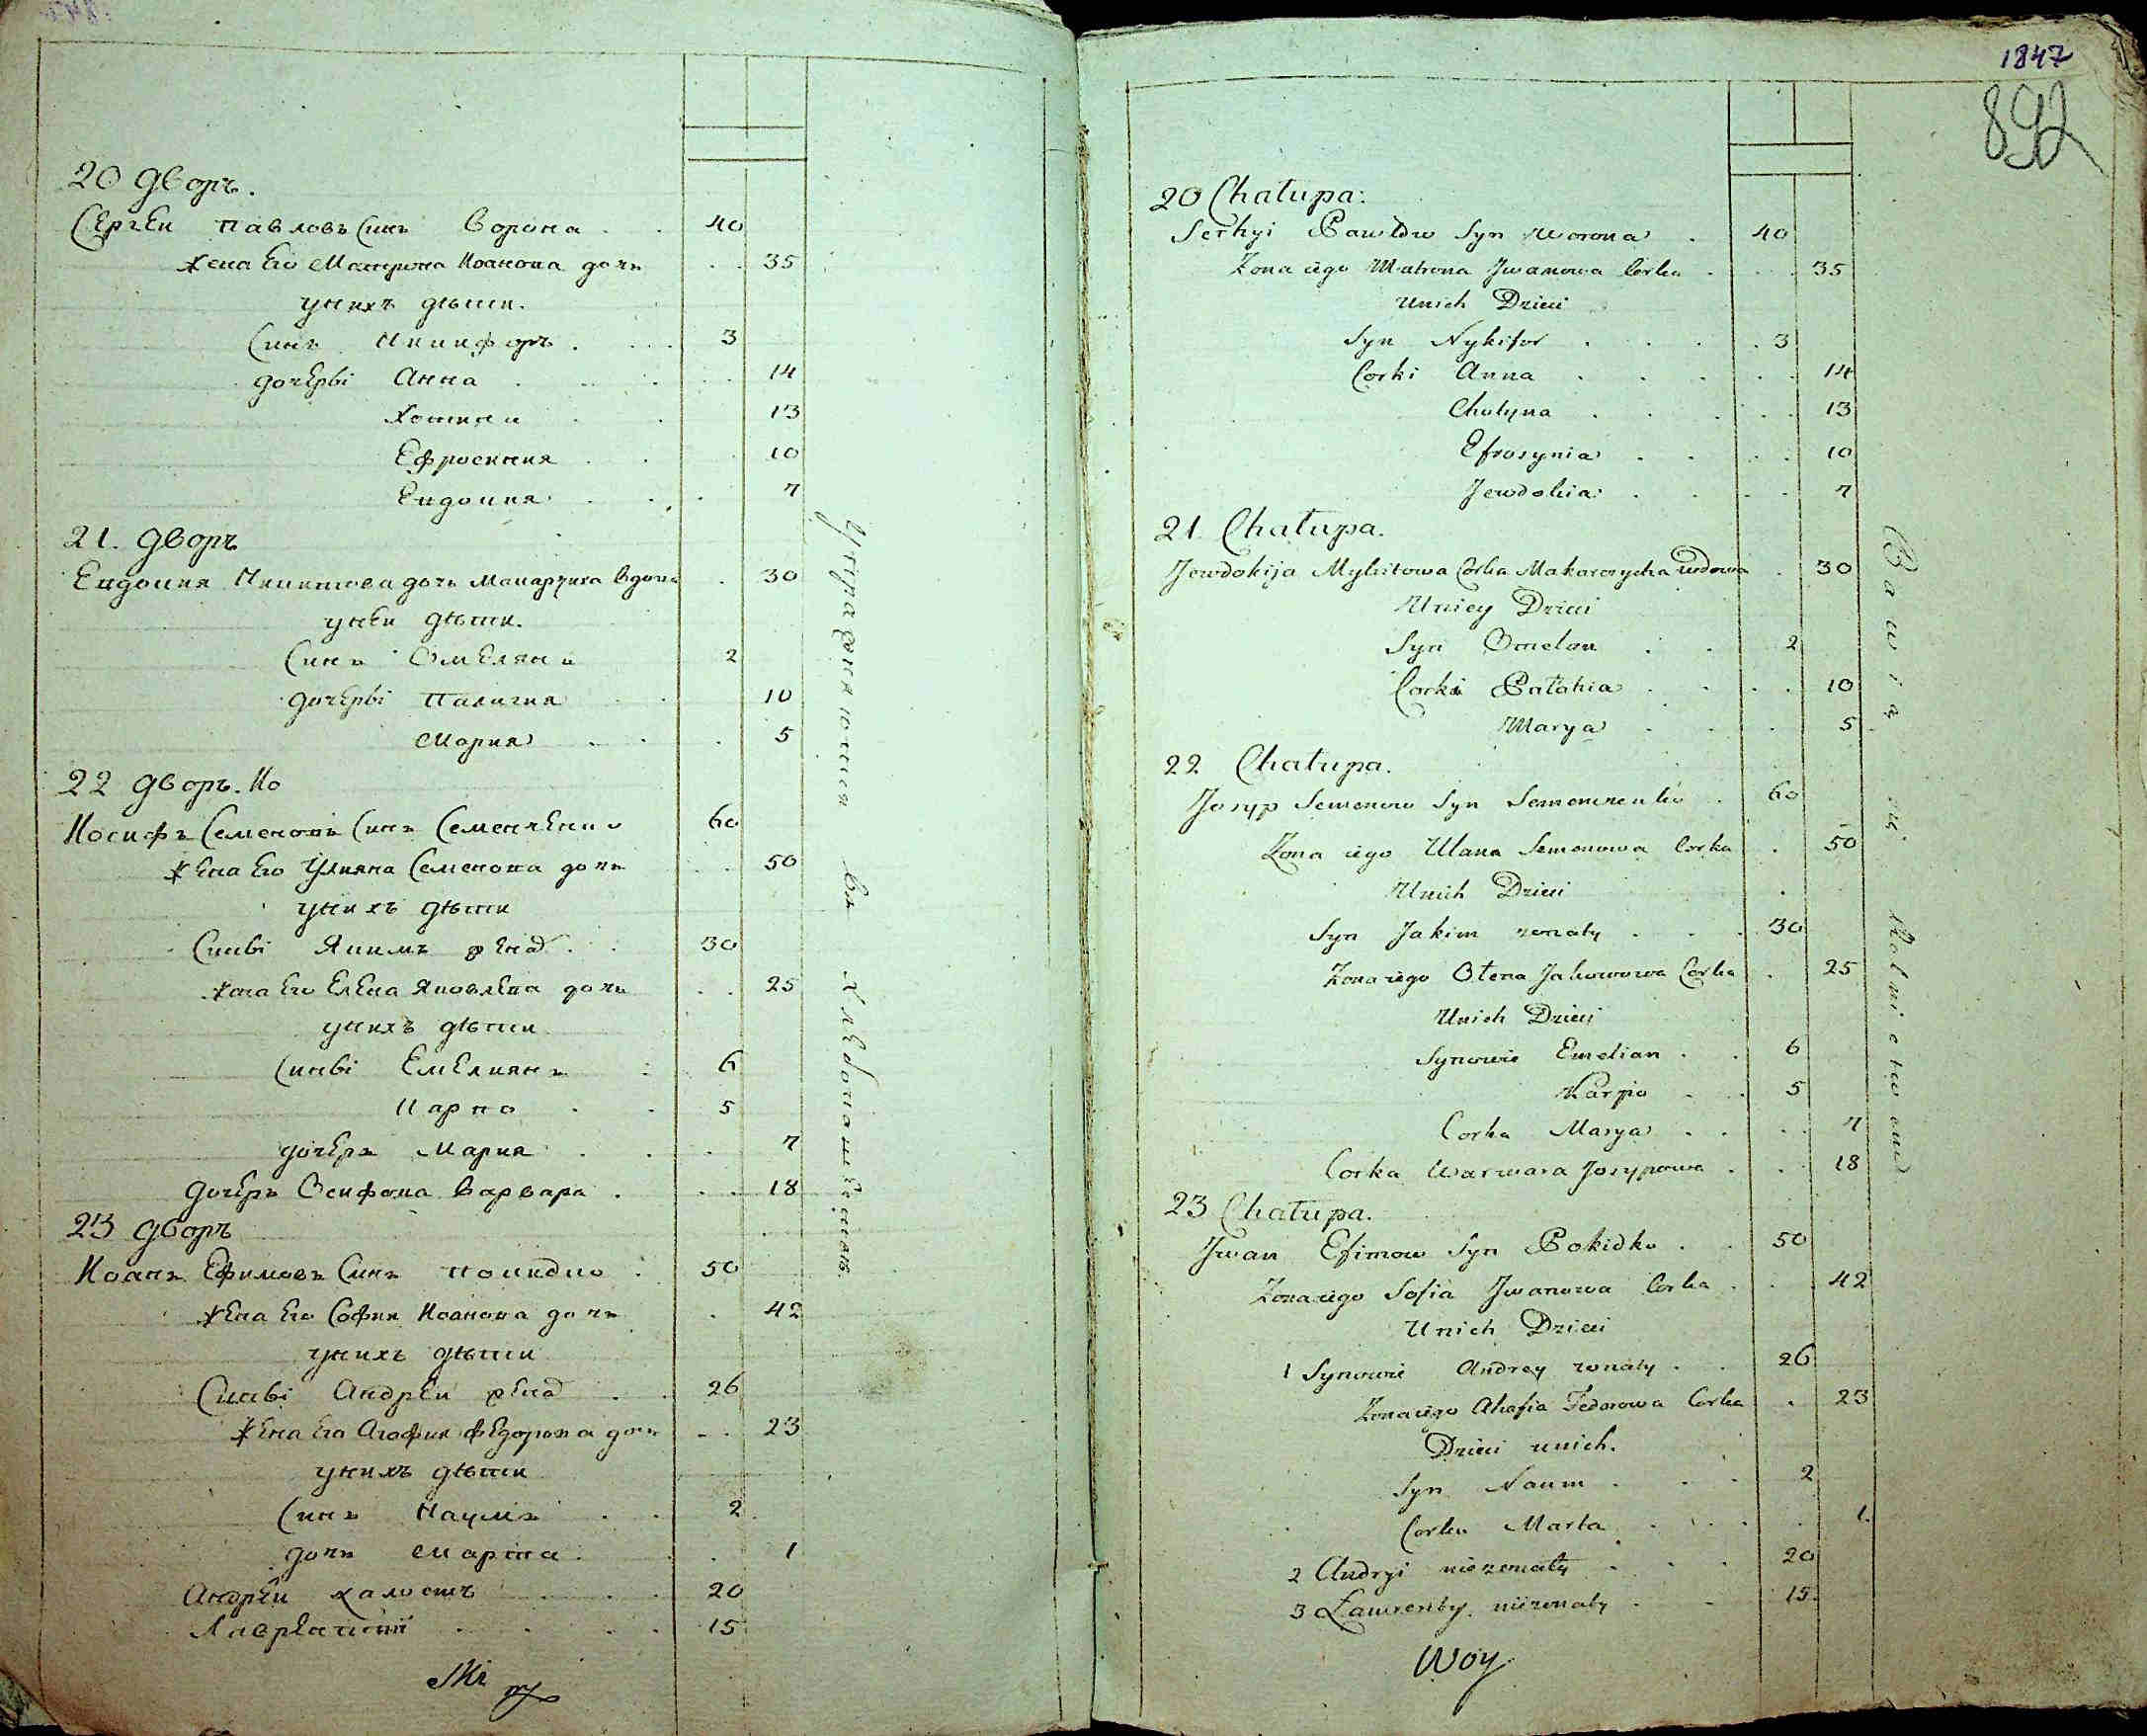 20 дворъ.
Сергеи Павловъ синъ Ворона . . 40
жена его Матрина Иоанова дочь . . 35
унихъ дѣти.
Синъ Никифоръ . . . . 3
дочерѣ Анна . . . . 14
Хотина . . 13
Ефросиния . . 10
Евдокия . . . 7
21. дворъ
Евдокия Никитова дочь Макарчиха вдова . 30
унеи дѣти.
Синъ Омелянъ 2
дочерѣ Палагия . . 10
Мария . . . 5
22 дворъ. Ио
Иосифъ Семеновъ Синъ Семенченко 60
жена его Улияна Семенова дочь . . 50
унихъ дѣти
Синвѣ Якимъ жена . . 30
жена его Елена Яковлева дочь . . 25
унихъ дѣти
Синвѣ Емелиянъ 6
Карпо . . 5
дочерь Мария . . . 7
дочерь Осифова Варвара . . . 18
23 дворъ
Иоанъ Ефимовъ Синъ Покидко . 50
жена его София Иоанова дочь . 42
унихъ дѣти
Синвѣ Андреи жена . . 26
жена его Агофия Федорова дочь . . 23
унихъ дѣти
Синъ Наумъ . . 2
дочь Марта . . 1
Андреи халостъ . . . 20
Лаврентий . . . . 15
Упражняются въ хлебопашествѣ.
1847
892
20 Chałupa:
Serhyi Pawłow Syn Worona . 40
Zona iego Matrona Jwanowa Corka . . . 35
Unich Dzieci
Syn Nykifor . . . . 3
Corki Anna . . . . . 14
Chotyna . . . . 13
Efrosynia . . . . 10
Jewdokia . . . . 7
21. Chałupa.
Jewdokija Mykitowa Corka Makarczycha wdowa . 30
Uniey Dzieci
Syn Omelan . . 2
Corki Pałahia . . . . 10
Marya . . . . 5
22 Chałupa.
Josyp Semenow Syn Semenczenko . 60
Zona iego Ulana Semenowa Corka . 50
Unich Dzieci
Syn Jakim zonaty . . . 30
Zona iego Ołena Jakowowa Corka . 25
Unich Dzieci
Synowie Emelian . . 6
Karpo . . 5
Corka Marya . . . . 7
Corka Warwara Josypowa . . . 18
23 Chałupa.
Jwan Efimow Syn Pokidko . . 50
Zona iego Sofia Jwanowa Corka . . . 42
Unich Dzieci
1 Synowie Andrey zonaty . . 26
Zona iego Ahafia Fedorowa Corka . 23
Dzieci unich.
Syn Naum . . . 2
Corka Marta . . . . . 1.
2 Andryi niezonaty . . . 20
3 Ławrenty niezonaty . . 15.
Woy
Bawią się Rolnictwem